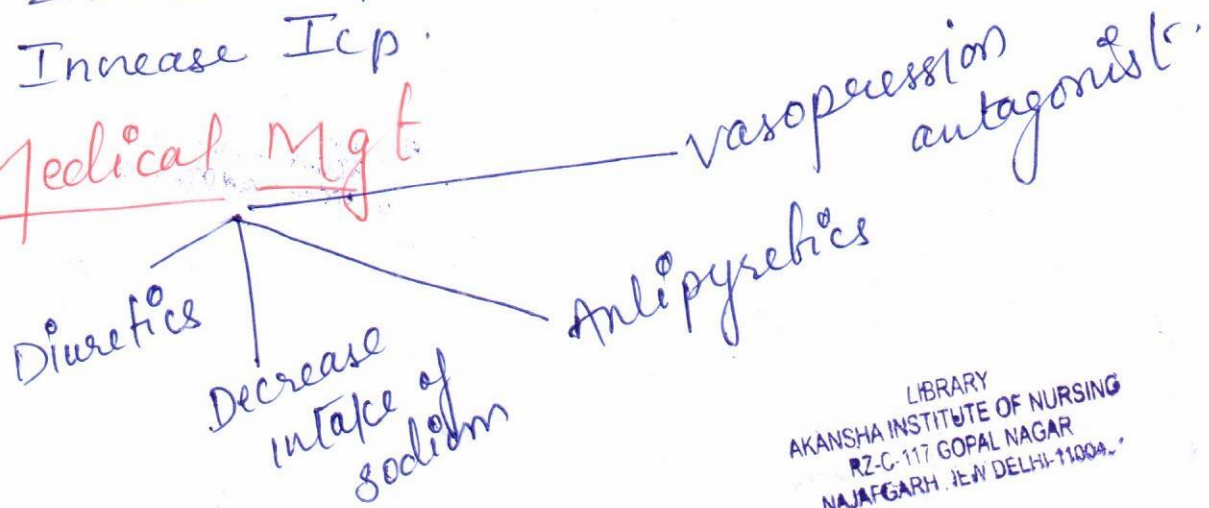 Increase Icp.
Medical Mgt
vasopression
antagonist.
Diuretics
Decrease
intake of
sodium
Antipyretics
LIBRARY
AKANSHA INSTITUTE OF NURSING
RZ-C-117 GOPAL NAGAR
NAJAFGARH, NEW DELHI-11004